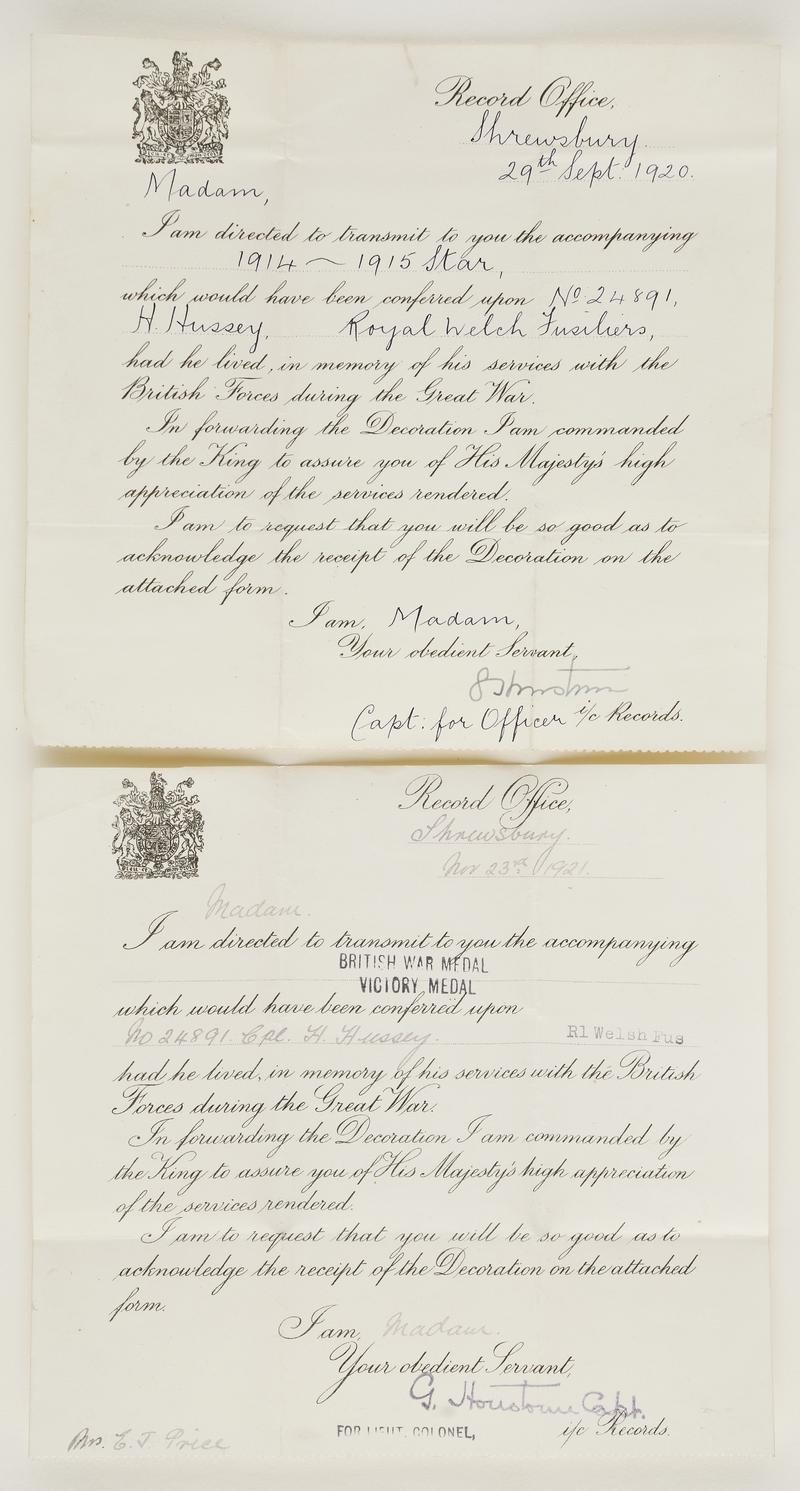 Record Office,
Shrewsbury.
29th Sept. 1920.
Madam,
I am directed to transmit to you the accompanying
1914 ~ 1915 Star,
which would have been conferred upon No 24891,
H. Hussey, Royal Welch Fusiliers,
had he lived, in memory of his services with the
British Forces during the Great War.
In forwarding the Decoration I am commanded
by the King to assure you of His Majesty's high
appreciation of the services rendered.
I am to request that you will be so good as to
acknowledge the receipt of the Decoration on the
attached form.
I am, Madam,
Your obedient Servant,
Capt: for Officer i/c Records.
Record Office,
Shrewsbury.
Nov 23rd 1921.
Madam.
I am directed to transmit to you the accompanying
BRITISH WAR MEDAL
VICTORY MEDAL
which would have been conferred upon
No 24891. Cpl. H. Hussey. Rl Welsh Fus
had he lived, in memory of his services with the British
Forces during the Great War.
In forwarding the Decoration I am commanded by
the King to assure you of His Majesty's high appreciation
of the services rendered.
I am to request that you will be so good as to
acknowledge the receipt of the Decoration on the attached
form.
I am, Madam.
Your obedient Servant,
G. Capt.
FOR LIEUT. COLONEL, i/c Records.
Mrs. E. J. Price